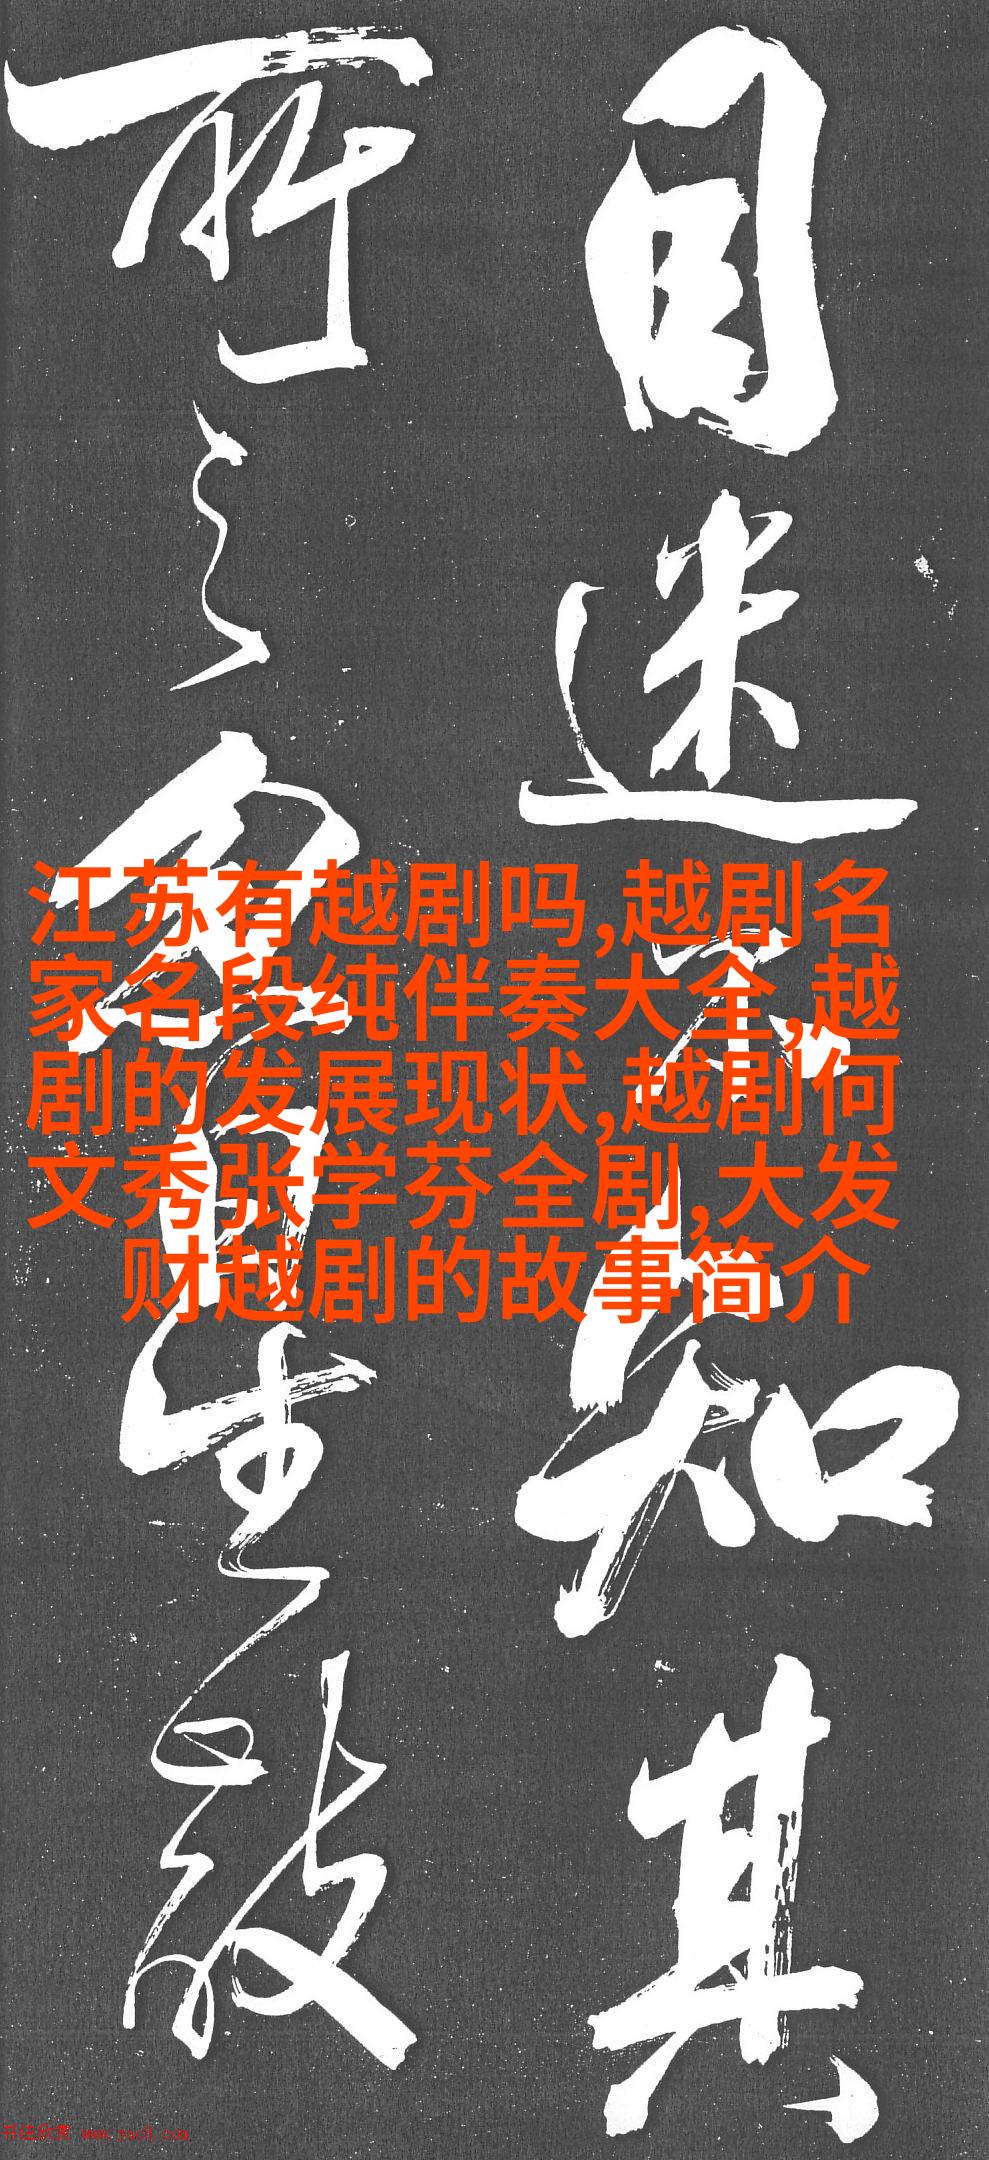 目迷不知其
所之自生
江苏有越剧吗,越剧名
家名段纯伴奏大全,越
剧的发展现状,越剧何
文秀张学芬全剧,大发
财越剧的故事简介